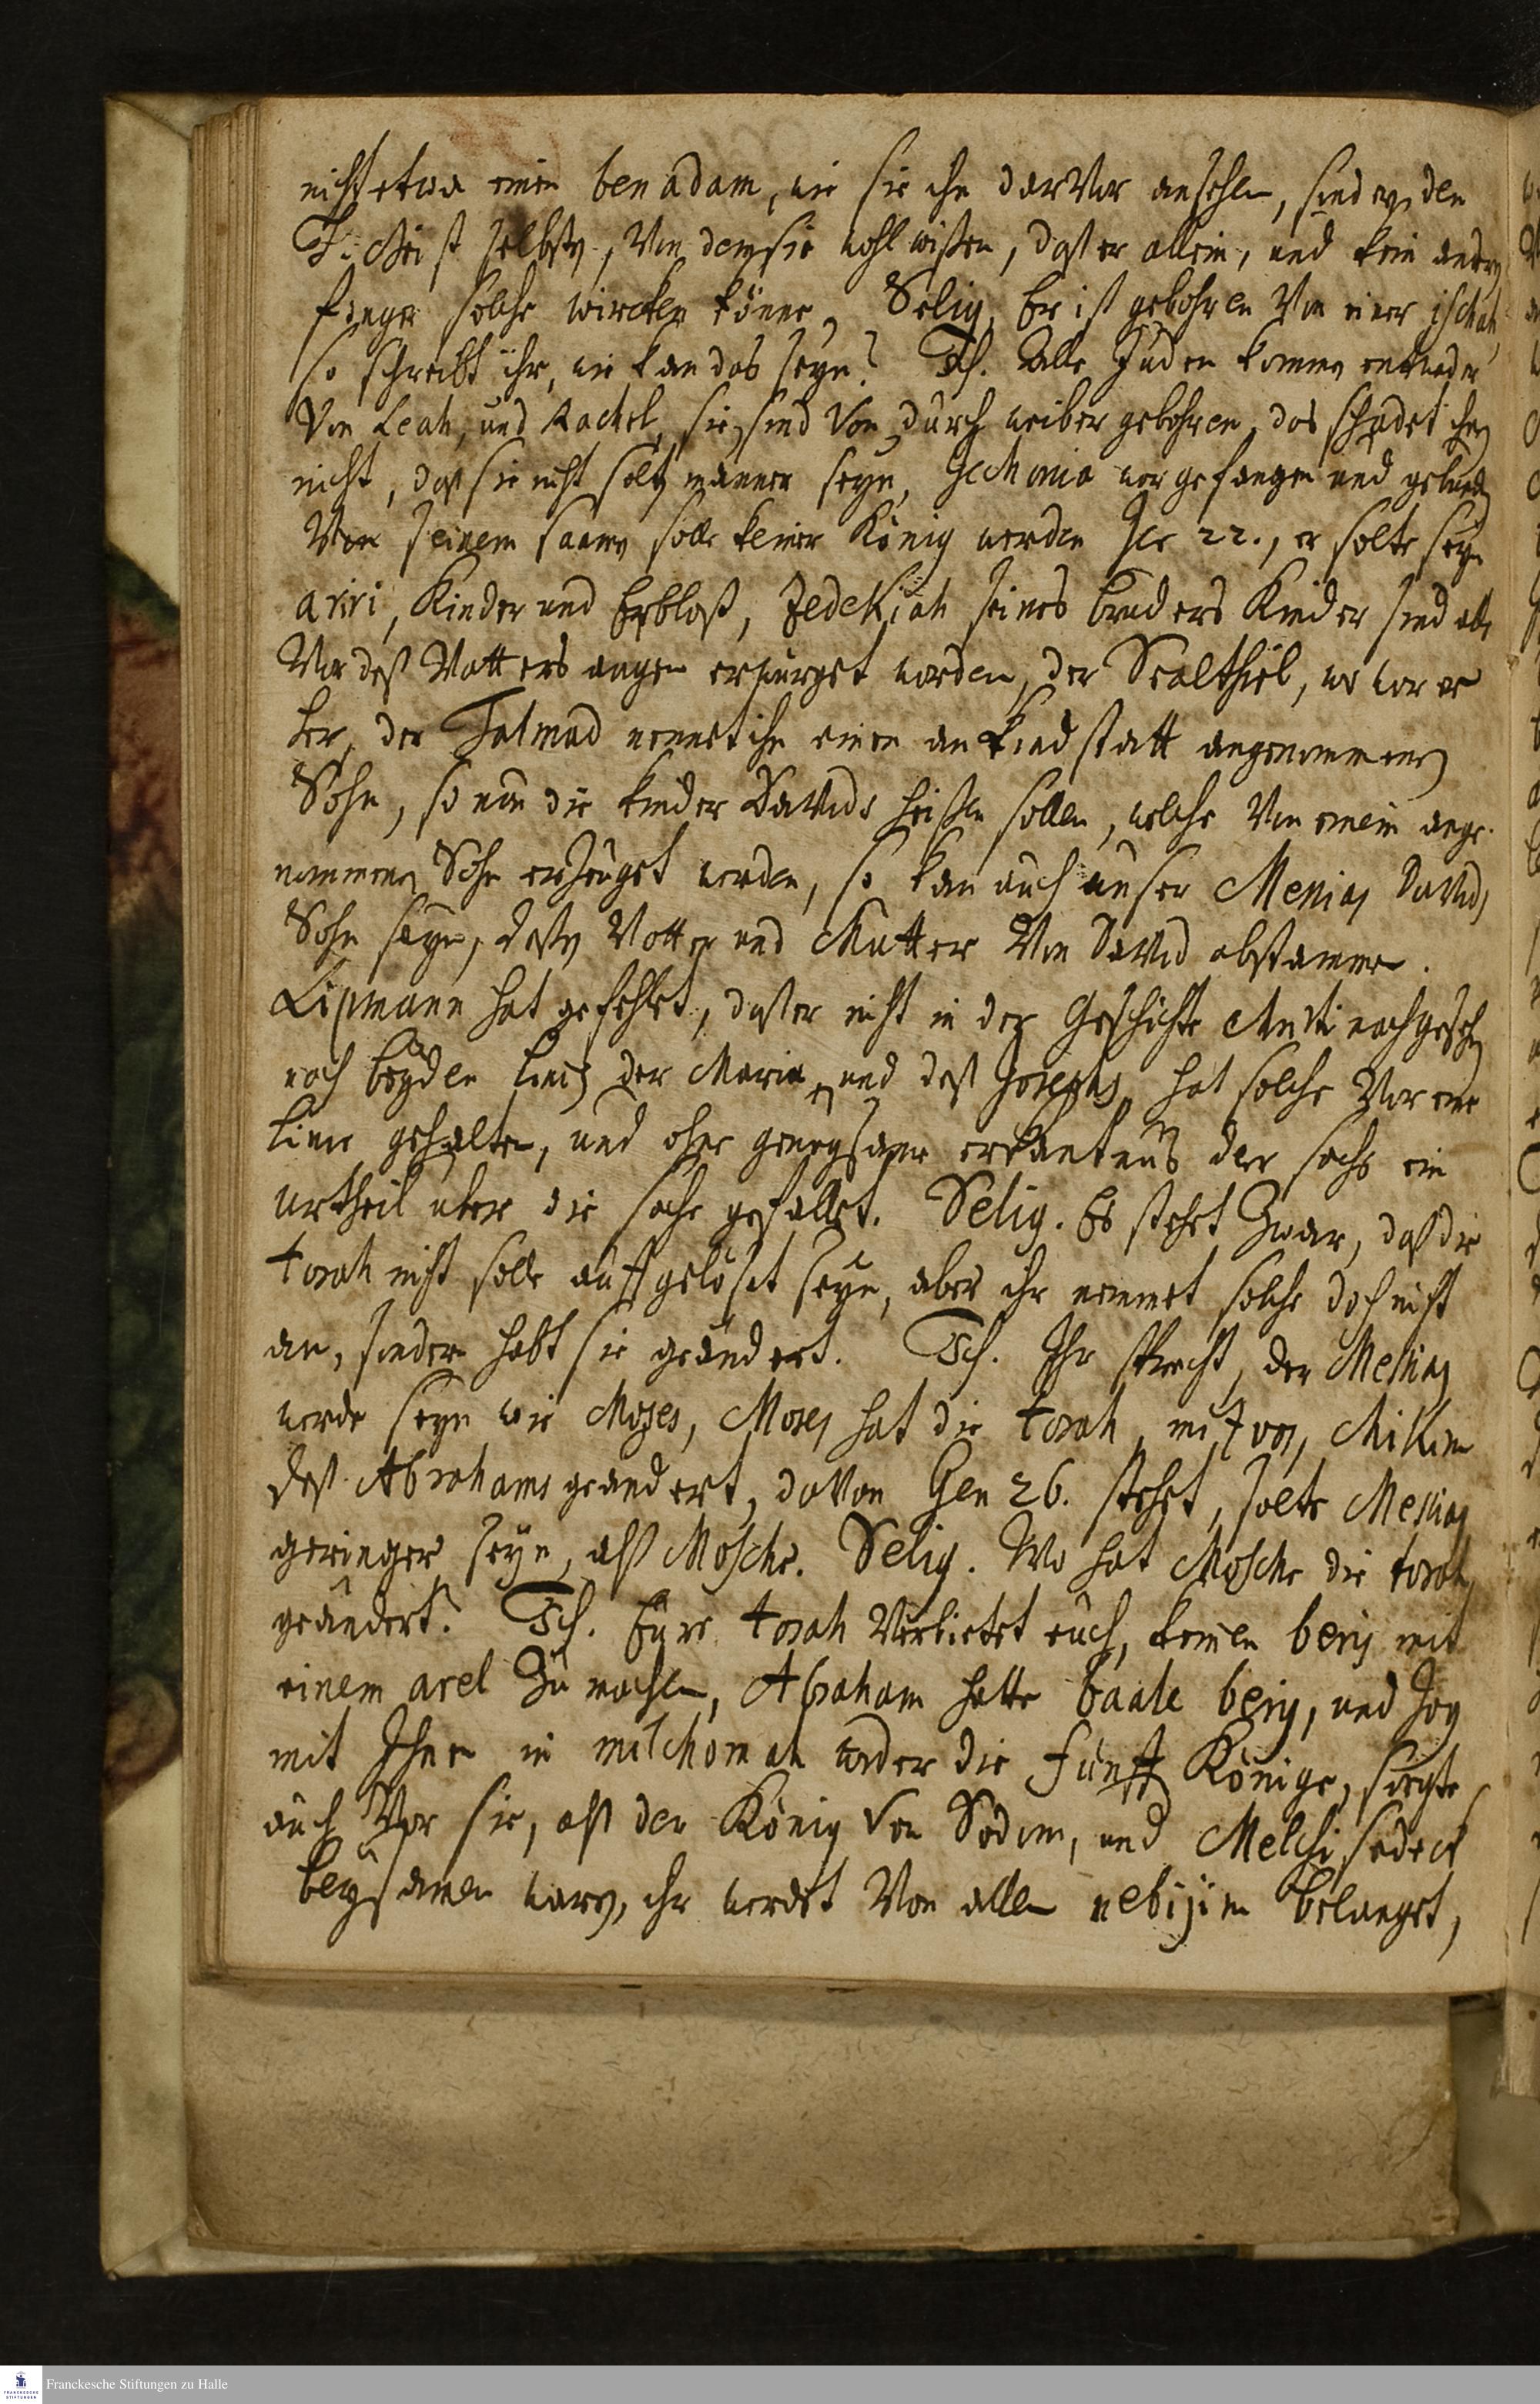 nicht etwa einen ben adam, wie sie ihn darvor ansehen, sondern den
H. Geist selbsten, von dem sie wohl wißen, daß er allein, und kein ander
finger solche wircken könne. Selig. Er ist gebohren von einer ischah,
so schreibt ihr, wie kan das seyn? Ich. Alle Juden kommen entweder
von Leah, und Rachel, sie sind von durch weiber gebohren, das schadet ihnen
nicht, daß sie nicht solten männer seyn, Jechonia war gefangen und gebunden
Von seinem saamen solle keiner König werden Jer 22., er solte seyn
ariri, Kinder und Erbloß, Zedekiah seines bruders Kinder sind alle
Vor deß Vatters augen erwürget worden, der Sealthiel, wo war er
her, der Talmud nennet ihn einen an kindstatt angenommenen
Sohn, so nun die kinder Davids heißen sollen, welche von einem ange-
nommenen Sohn erzeuget werden, so kan auch unser Messias Davids
Sohn seyn, deßen Vatter und Mutter von David abstammen.
Lipmann hat gefehlet, daß er nicht in der Geschichte Christi nachgesehen
nach beyden linien der Maria, und deß Josephs, hat solche vor eine
linie gehalten, und ohne genugsame erkantnus der sache ein
urtheil uber die sache gefället. Selig. Es stehet zwar, daß die
torah nicht solle auffgelöset seyn, aber ihr nemmet solche doch nicht
an, sondern habt sie geändert. Ich. Ihr sprecht, der Messias
werde seyn wie Moses, Moses hat die torah, mizvos, chikim
deß Abrahams geandert, davon Gen 26. stehet, solte Messias
geringer seyn, alß Mosche. Selig. Wo hat Mosche die torah
geändert? Ich. Eure torah verbietet euch, keinen beris mit
einem arel zu machen, Abraham hatte baale beris, und zog
mit Ihnen in milchomah wider die fünff Könige, siegte
auch vor sie, alß der König von Sodom, und Melchisedeck
beysamen waren, ihr werdet von allen nebijim belanget,
Franckesche Stiftungen zu Halle